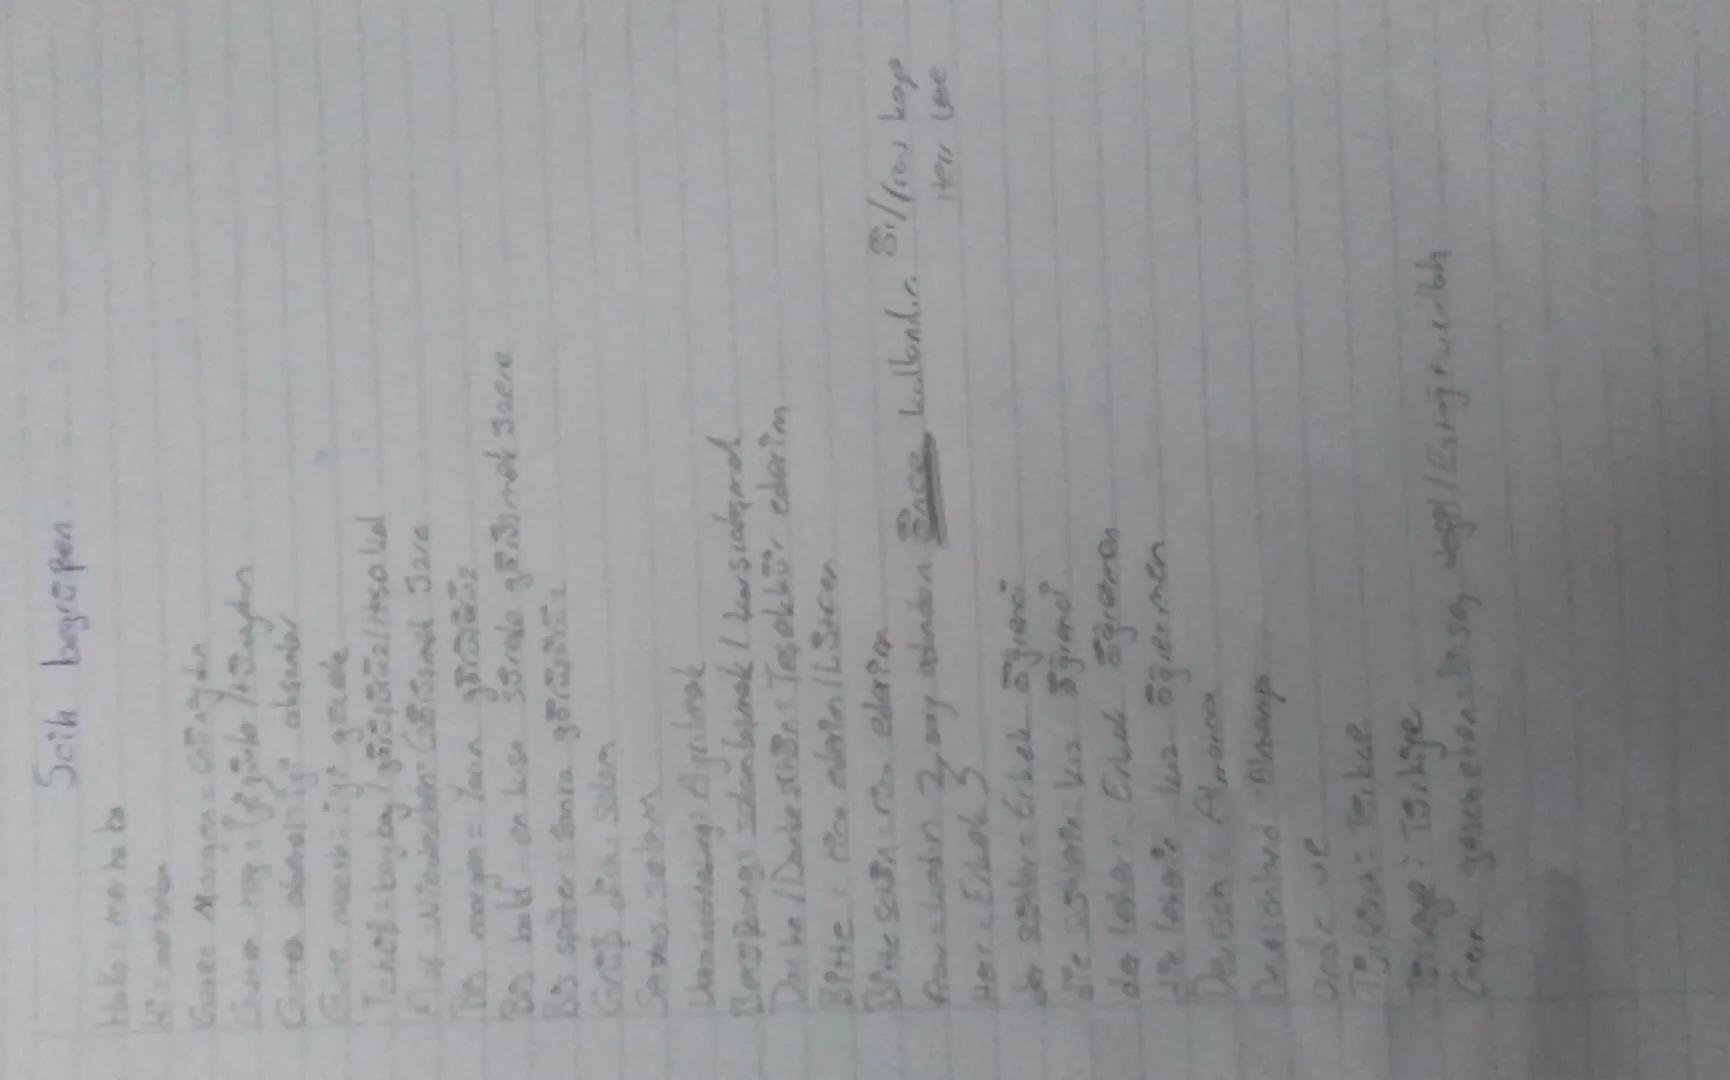 Scih begrüpen
Hallo: merhaba
Hi: merhaba
Guten Morgen = Günaydın
Guten Tag = İyi günler / tünaydın
Guten abend = iyi akşamlar
Gute nacht = iyi gecele
Tchüß = baybay / görüşürüz / Hoşakal
Auf Wiedersehen: Görüşmek üzere
Bis morgen = Yarın görüşürüz
Bis bald = en kısa sürede görüşmek üzere
Bis später = Sonra görüşürüz
Grüß dich: Selam
Servus: selam
Begrüßung: selamlaşmak / karşılaşmak
Danke / Danke schön: Teşekkür ederim
Bitte: rica ederim / Lütfen
Bitte schön = rica ederim
Frau = kadın } soy adından önce kullanılır. Ör/ frau kaya
Herr = Erkek } Herr
der schüler = Erkek öğrenci
die schülerin = kız öğrenci
der lehrer = Erkek öğretmen
die lehrerin kız öğretmen
Deutsch = Almanca
Deutschland: Almanya
Und = ve
Türkisch = Türkçe
Türkei = Türkiye